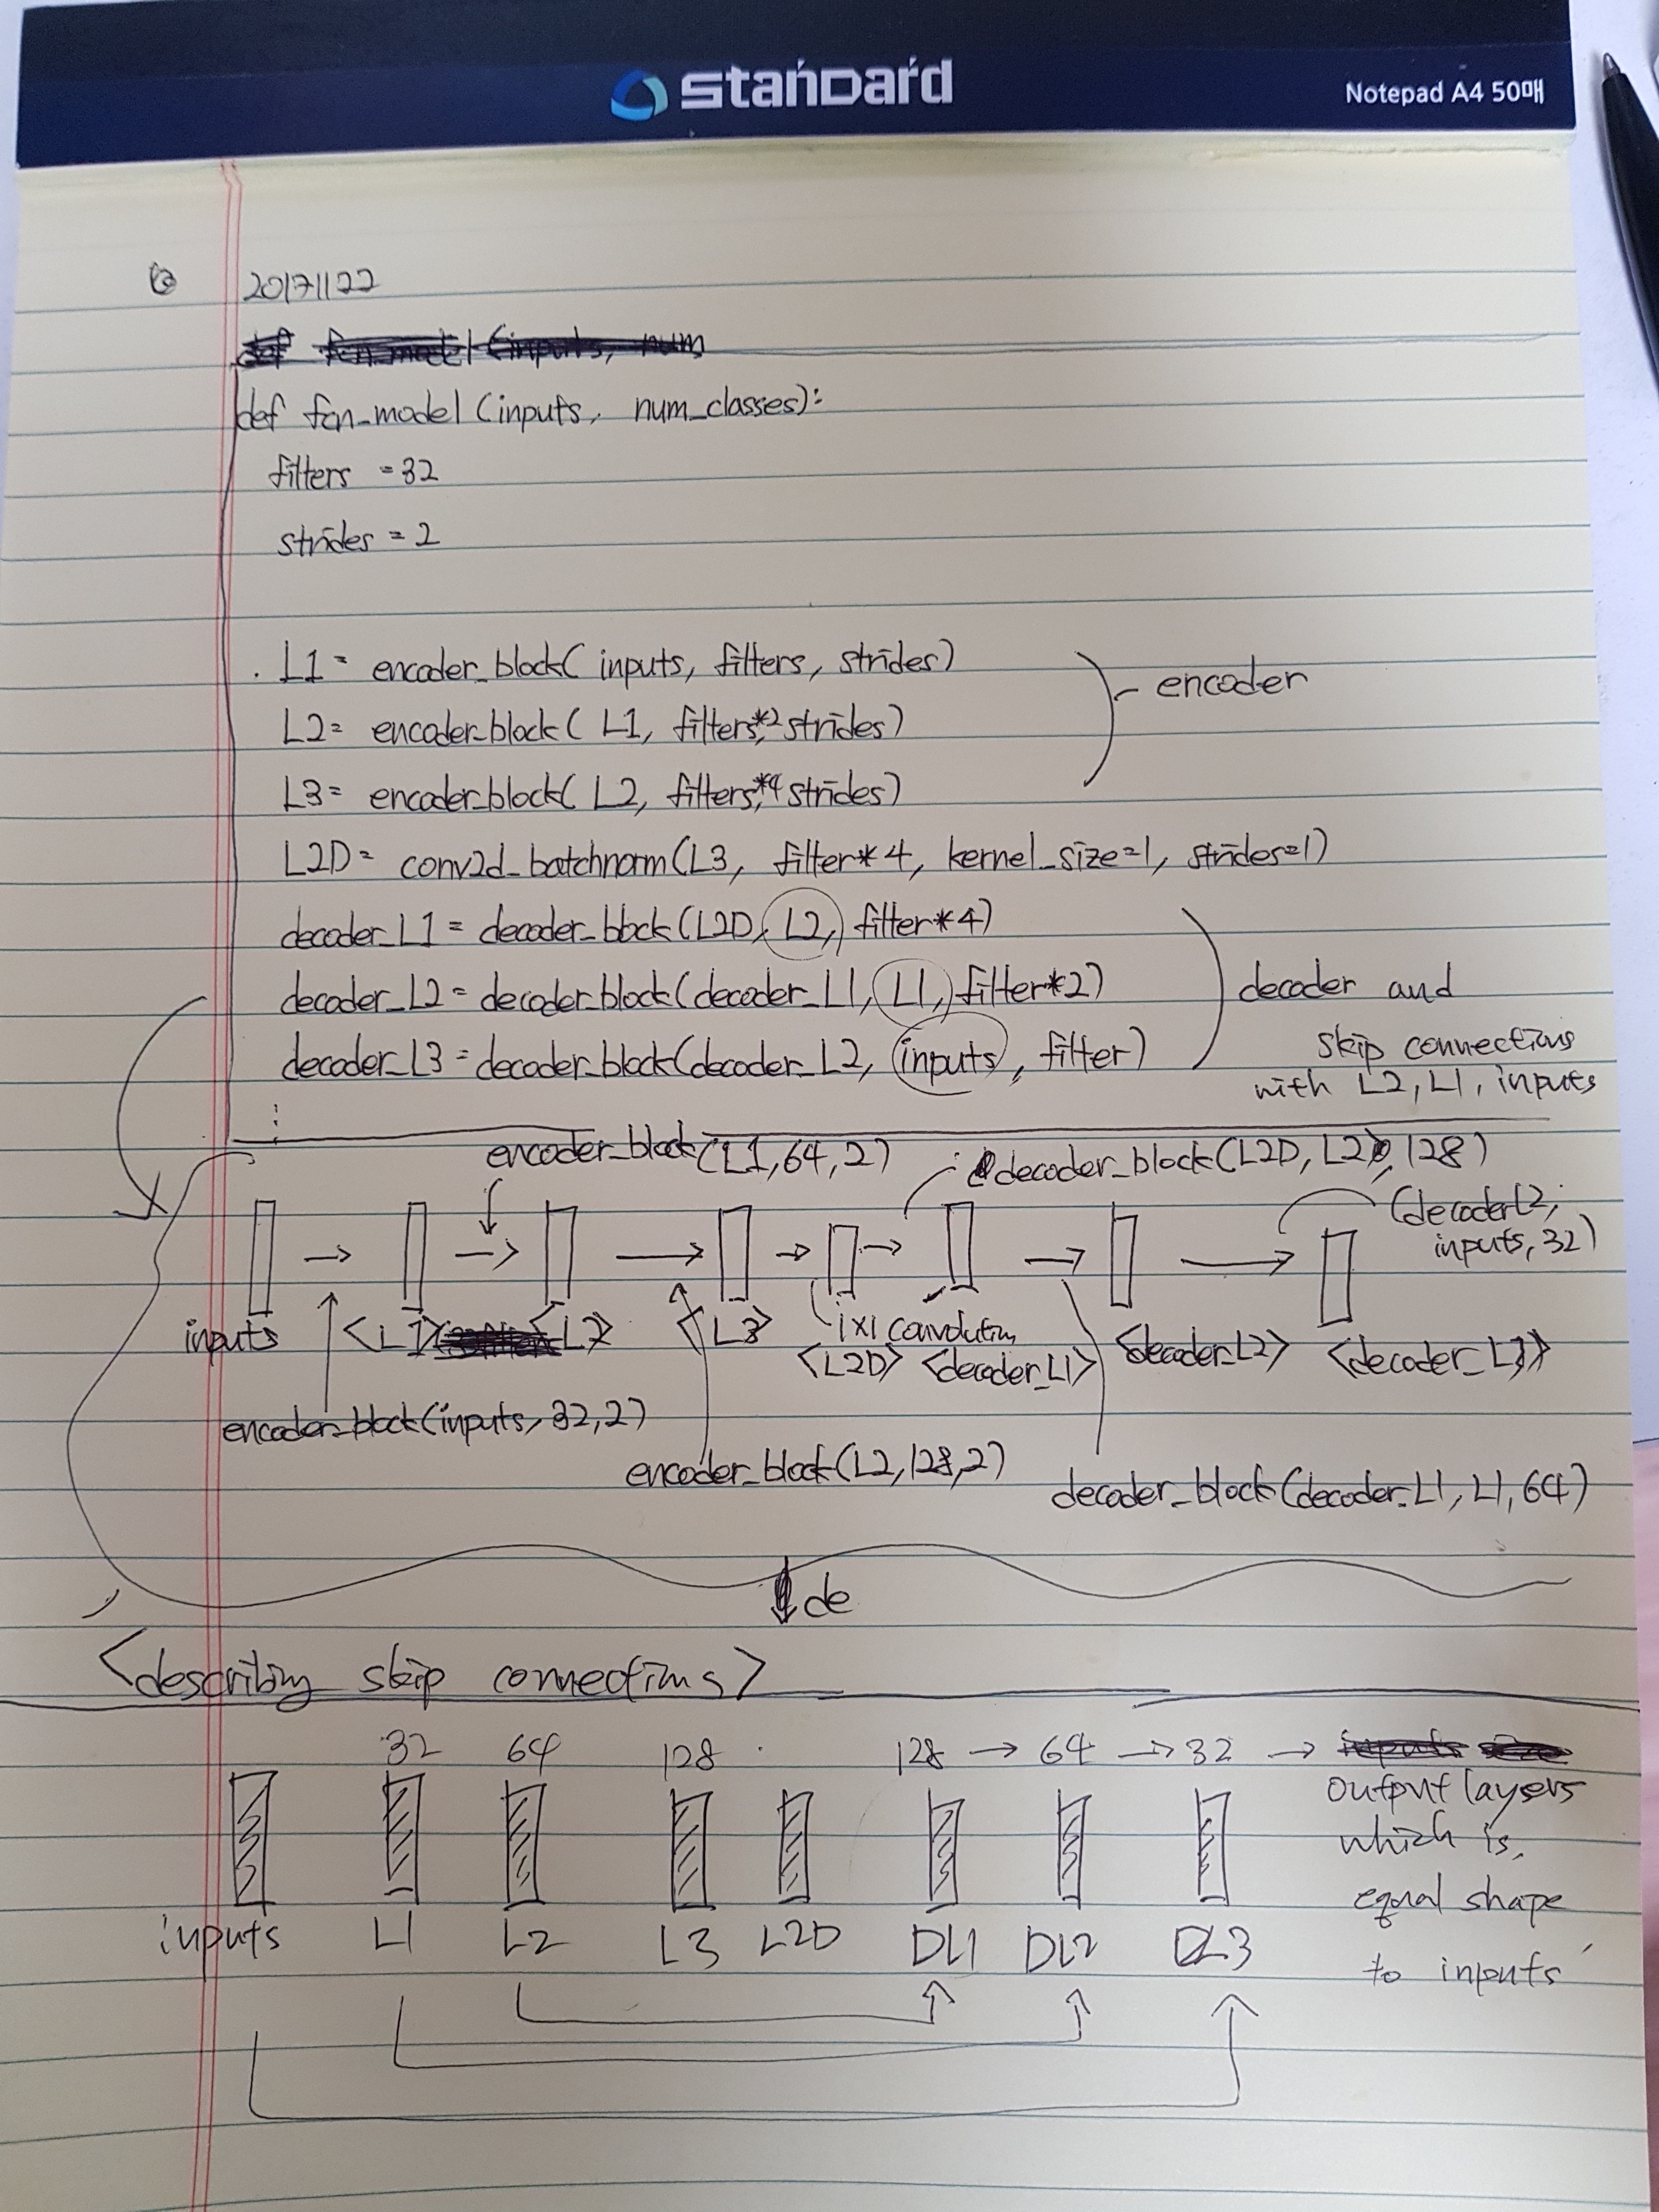 standard
Notepad A4 50매
20171122
def fcn_model (inputs, num
def fcn_model (inputs, num_classes):
filters = 32
strides = 2
L1 = encoder_block( inputs, filters, strides)
encoder
L2 = encoder_block( L1, filters*2, strides)
L3 = encoder_block( L2, filters*4, strides)
L2D = conv2d_batchnorm(L3, filter*4, kernel_size=1, strides=1)
decoder_L1 = decoder_block(L2D, L2, filter*4)
decoder_L2 = decoder_block(decoder_L1, L1, filter*2)
decoder_L3 = decoder_block(decoder_L2, inputs, filter)
decoder and
skip connections
with L2, L1, inputs
encoder_block(L1, 64, 2)
decoder_block(L2D, L2, 128)
(decoder L2,
inputs, 32)
inputs
<L1>
<L2>
<L3>
1x1 convolution
<L2D>
<decoder_L1>
<decoder_L2>
<decoder_L3>
encoder_block(inputs, 32, 2)
encoder_block(L2, 128, 2)
decoder_block(decoder_L1, L1, 64)
de
<describing skip connections>
32 64 128 128 → 64 → 32 →
output layers
which is,
equal shape
to inputs
inputs L1 L2 L3 L2D DL1 DL2 DL3